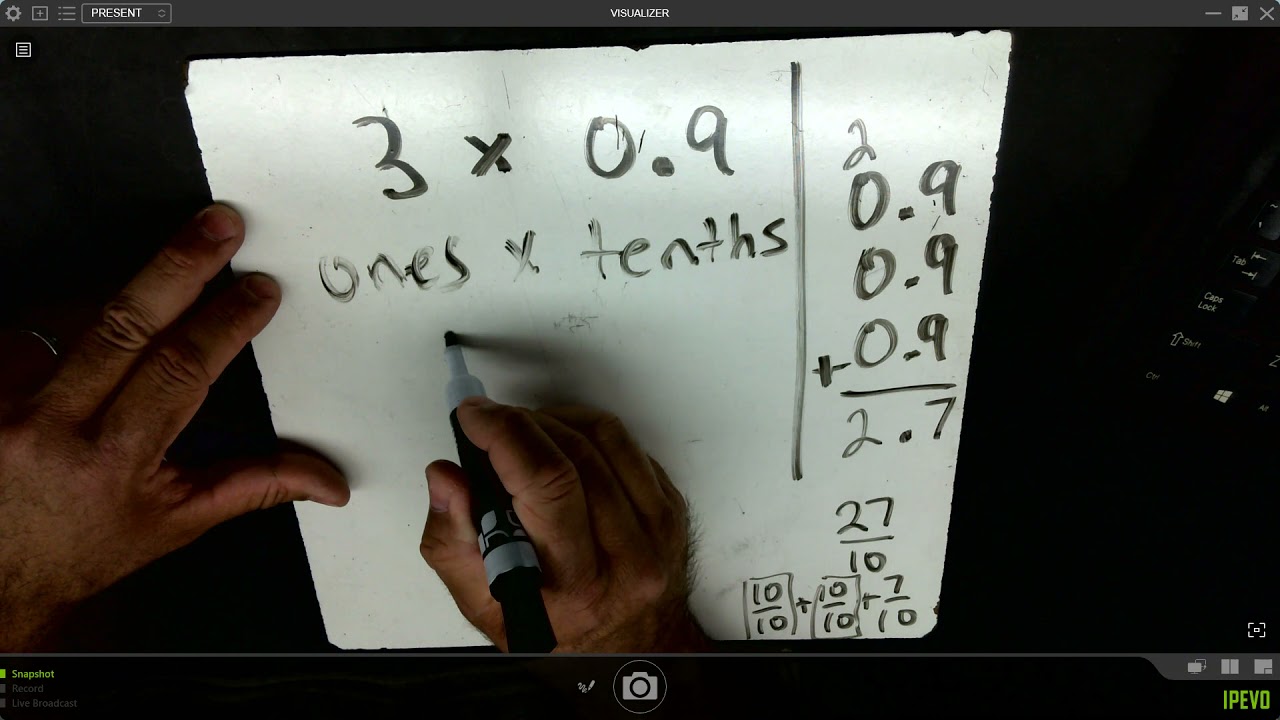 PRESENT
VISUALIZER
3 x 0.9
ones x tenths
2
0.9
0.9
+0.9
2.7
27
10
10 + 10 + 7
10 10 10
Tab
Caps
Lock
Shift
Snapshot
Record
Live Broadcast
IPEVO